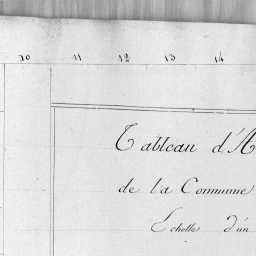 10 11 12 13 14
Tableau d'A
de la Commune
Echelle d'un